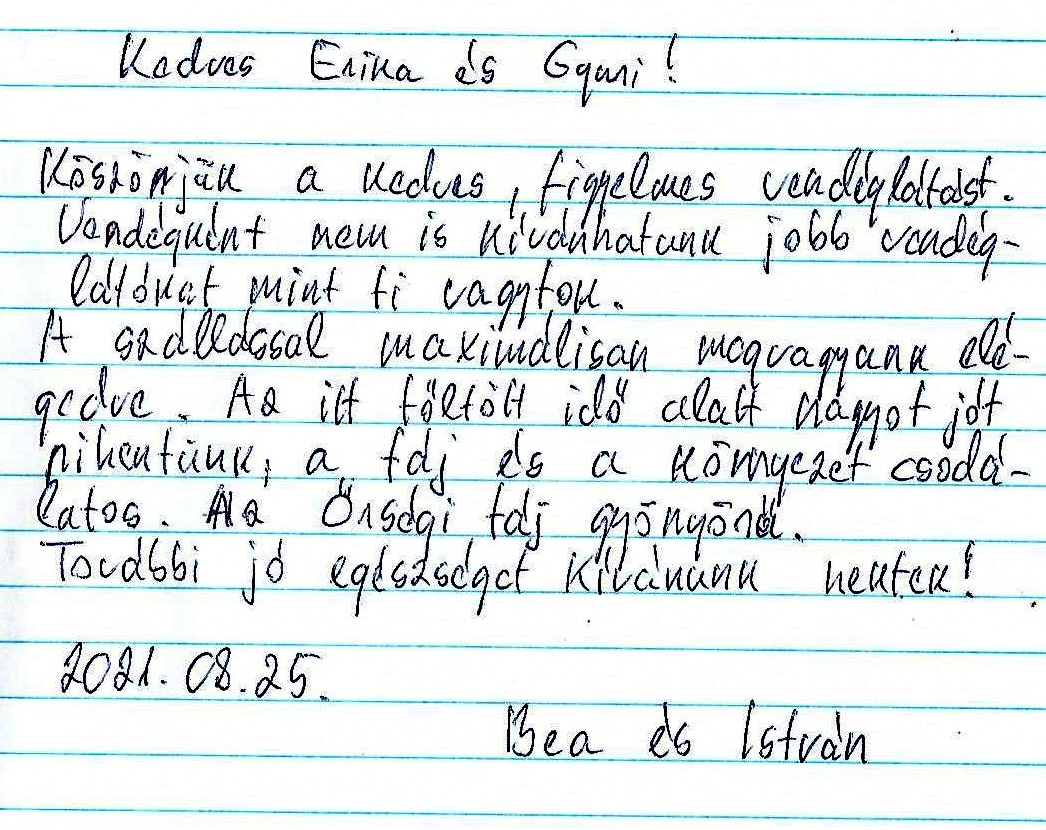 Kedves Erika és Gyuri!
Köszönjük a kedves, figyelmes vendéglátást.
Vendégként nem is kívánhatunk jobb vendég-
látókat mint ti vagytok.
A szállással maximálisan megvagyunk elé-
gedve. Az itt töltött idő alatt nagyot jót
pihentünk, a táj és a környezet csodá-
latos. Az Őrségi táj gyönyörű.
További jó egészséget kívánunk nektek!
2021.08.25.
Bea és István